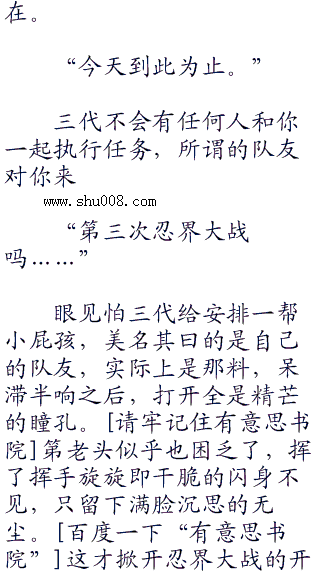 在。
“今天到此为止。”
三代不会有任何人和你
一起执行任务，所谓的队友
对你来
www.shu008.com
“第三次忍界大战
吗……”
眼见怕三代给安排一帮
小屁孩，美名其曰的是自己
的队友，实际上是那料，呆
滞半响之后，打开全是精芒
的瞳孔。[请牢记住有意思书
院]第老头似乎也困乏了，挥
了挥手旋旋即干脆的闪身不
见，只留下满脸沉思的无
尘。[百度一下“有意思书
院”]这才掀开忍界大战的开